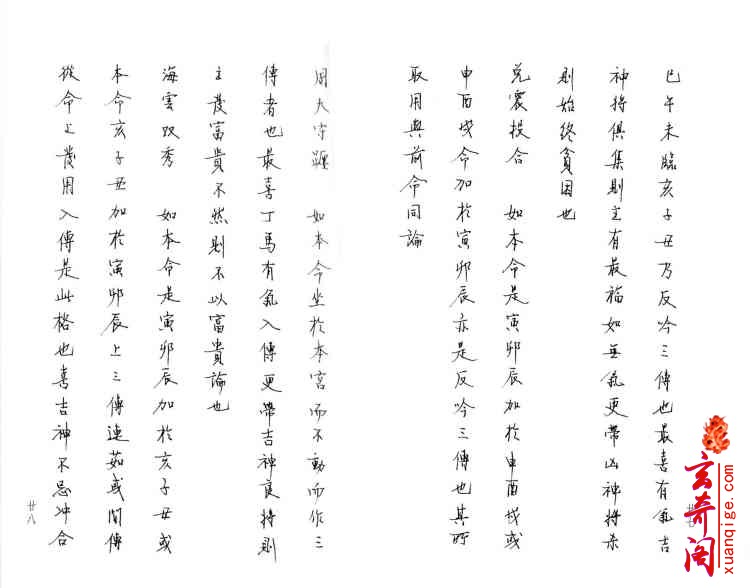 巳午未臨亥子丑乃反吟三傳也最喜有氣吉
神將俱集則主有最福如無氣更帶凶神將杀
則始終貧困也
兌震投合　如本命是寅卯辰加於申酉戌或
申酉戌命加於寅卯辰亦是反吟三傳也其所
取用與前命同論
周天守躔　如本命坐於本宮而不動而作三
傳者也最喜丁馬有氣入傳更帶吉神良將則
主發富貴不然則不以富貴論也
海雲双秀　如本命是寅卯辰加於亥子丑或
本命亥子丑加於寅卯辰上三傳連茹或間傳
從命上發用入傳是此格也喜吉神不忌冲合
廿八
玄奇阁
xuanqige.com